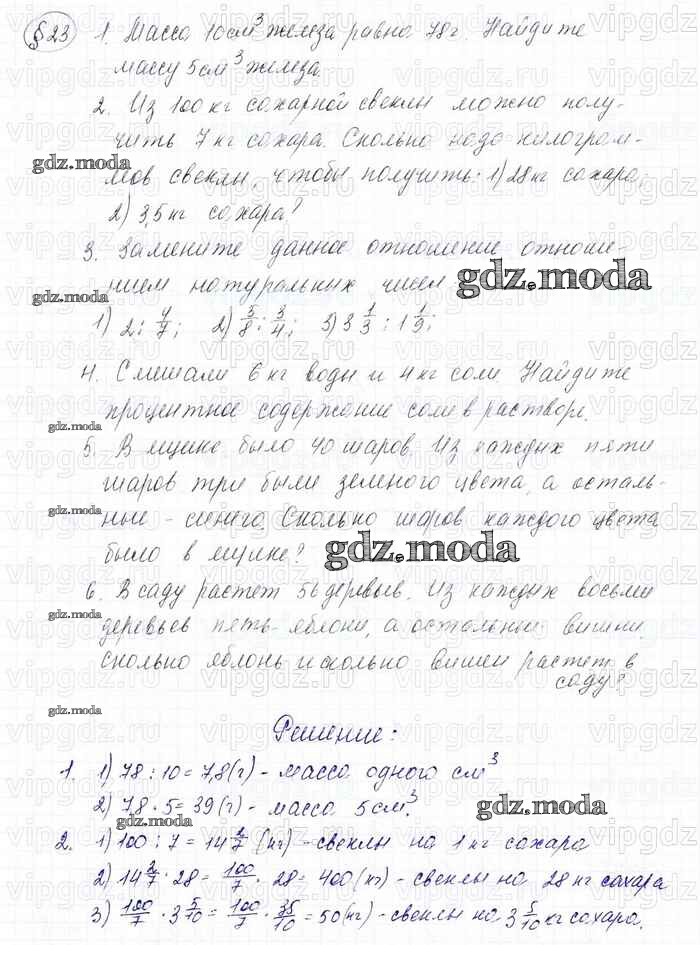 §23 1. Масса 10 см³ железа равна 78 г. Найдите
массу 5 см³ железа.
2. Из 100 кг сахарной свеклы можно полу-
чить 7 кг сахара. Сколько надо килограм-
gdz.moda
мов свеклы, чтобы получить: 1) 28 кг сахара;
2) 3,5 кг сахара?
3. Замените данное отношение отноше-
нием натуральных чисел
gdz.moda
gdz.moda
1) 2 : 4/7; 2) 3/8 : 3/4; 3) 3 1/3 : 1 1/9;
4. Смешали 6 кг воды и 4 кг соли. Найдите
процентное содержание соли в растворе.
gdz.moda
5. В ящике было 40 шаров. Из каждых пяти
шаров три были зеленого цвета, а осталь-
gdz.moda
ные - синего. Сколько шаров каждого цвета
было в ящике?
gdz.moda
6. В саду растет 56 деревьев. Из каждых восьми
gdz.moda
деревьев пять - яблони, а остальные вишни.
Сколько яблонь и сколько вишен растет в
саду?
gdz.moda
Решение:
1. 1) 78 : 10 = 7,8 (г) - масса одного см³
2) 7,8 · 5 = 39 (г) - масса 5 см³.
gdz.moda
gdz.moda
2. 1) 100 : 7 = 14 2/7 (кг) - свеклы на 1 кг сахара
2) 14 2/7 · 28 = 100/7 · 28 = 400 (кг) - свеклы на 28 кг сахара
3) 100/7 · 3 5/10 = 100/7 · 35/10 = 50 (кг) - свеклы на 3 5/10 кг сахара.